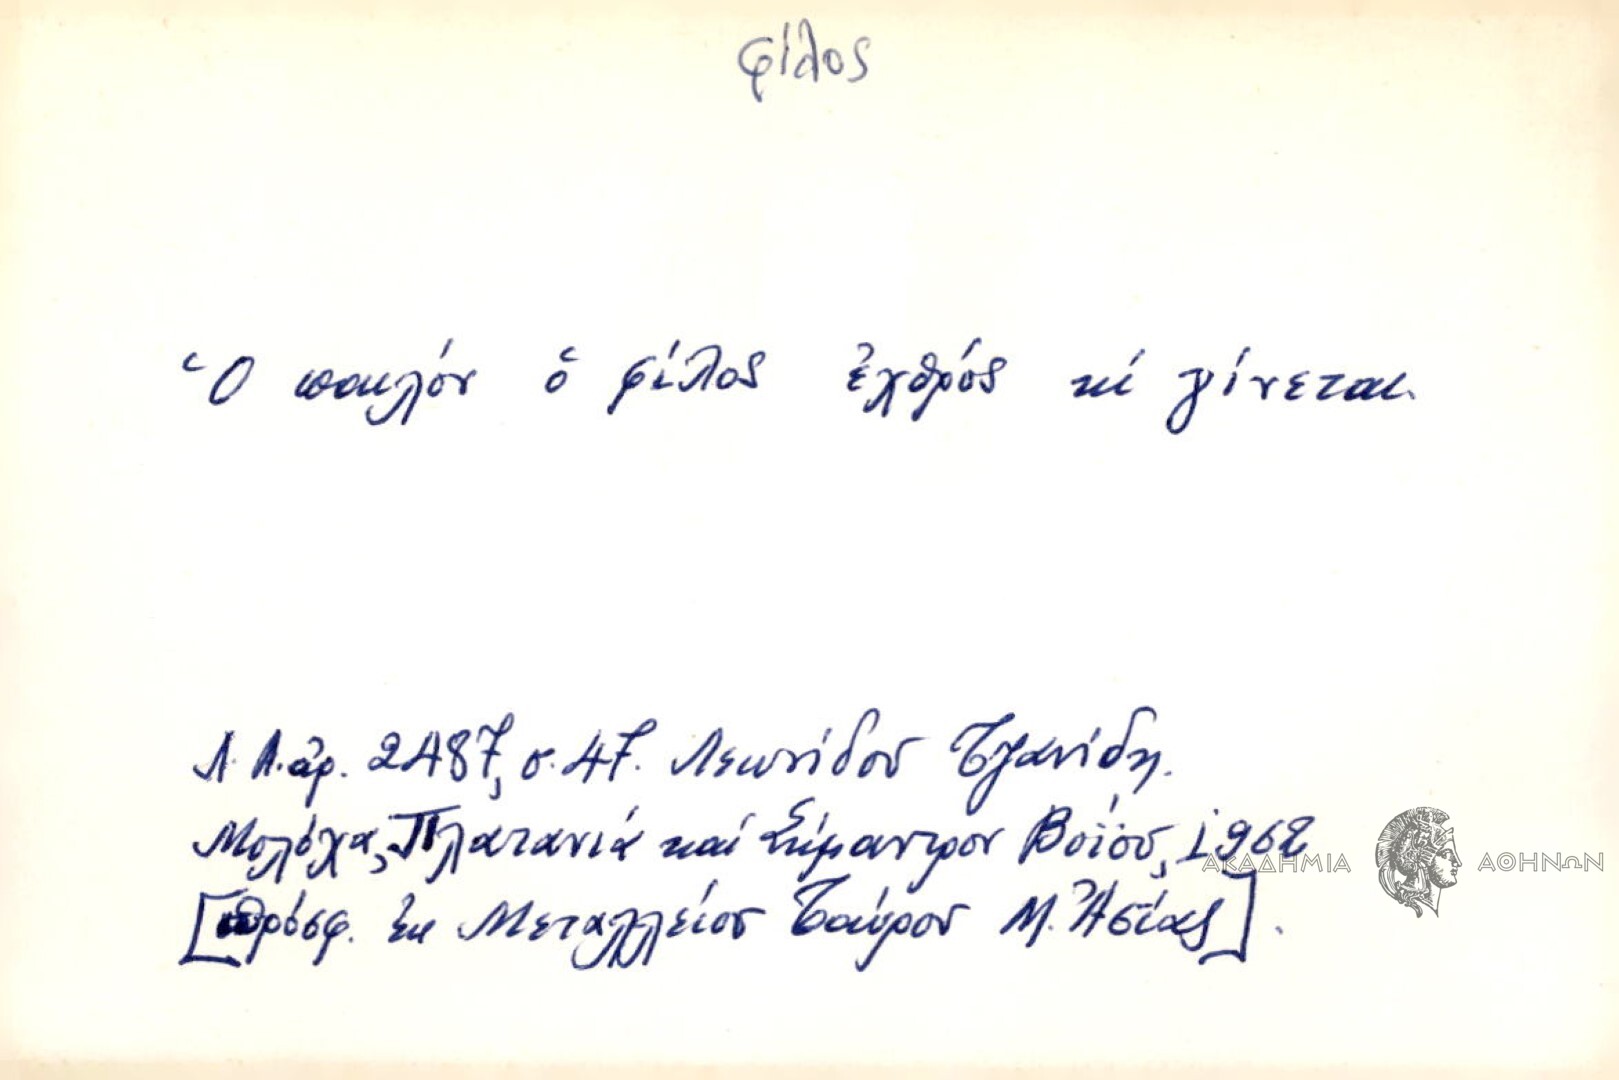 φίλος
Ὁ παλιόν ὁ φίλος ἐχθρός κί γίνεται.
Λ.Α. ἀρ. 2487, σ. 47. Λεωνίδου Τζανίδη.
Μολόχα, Πλατανιά καί Σήμαντρον Βοΐου, 1962
[πρόσφ. ἐκ Μεταλλείου Ταύρου Μ. Ἀσίας].
ΑΚΑΔΗΜΙΑ ΑΘΗΝΩΝ